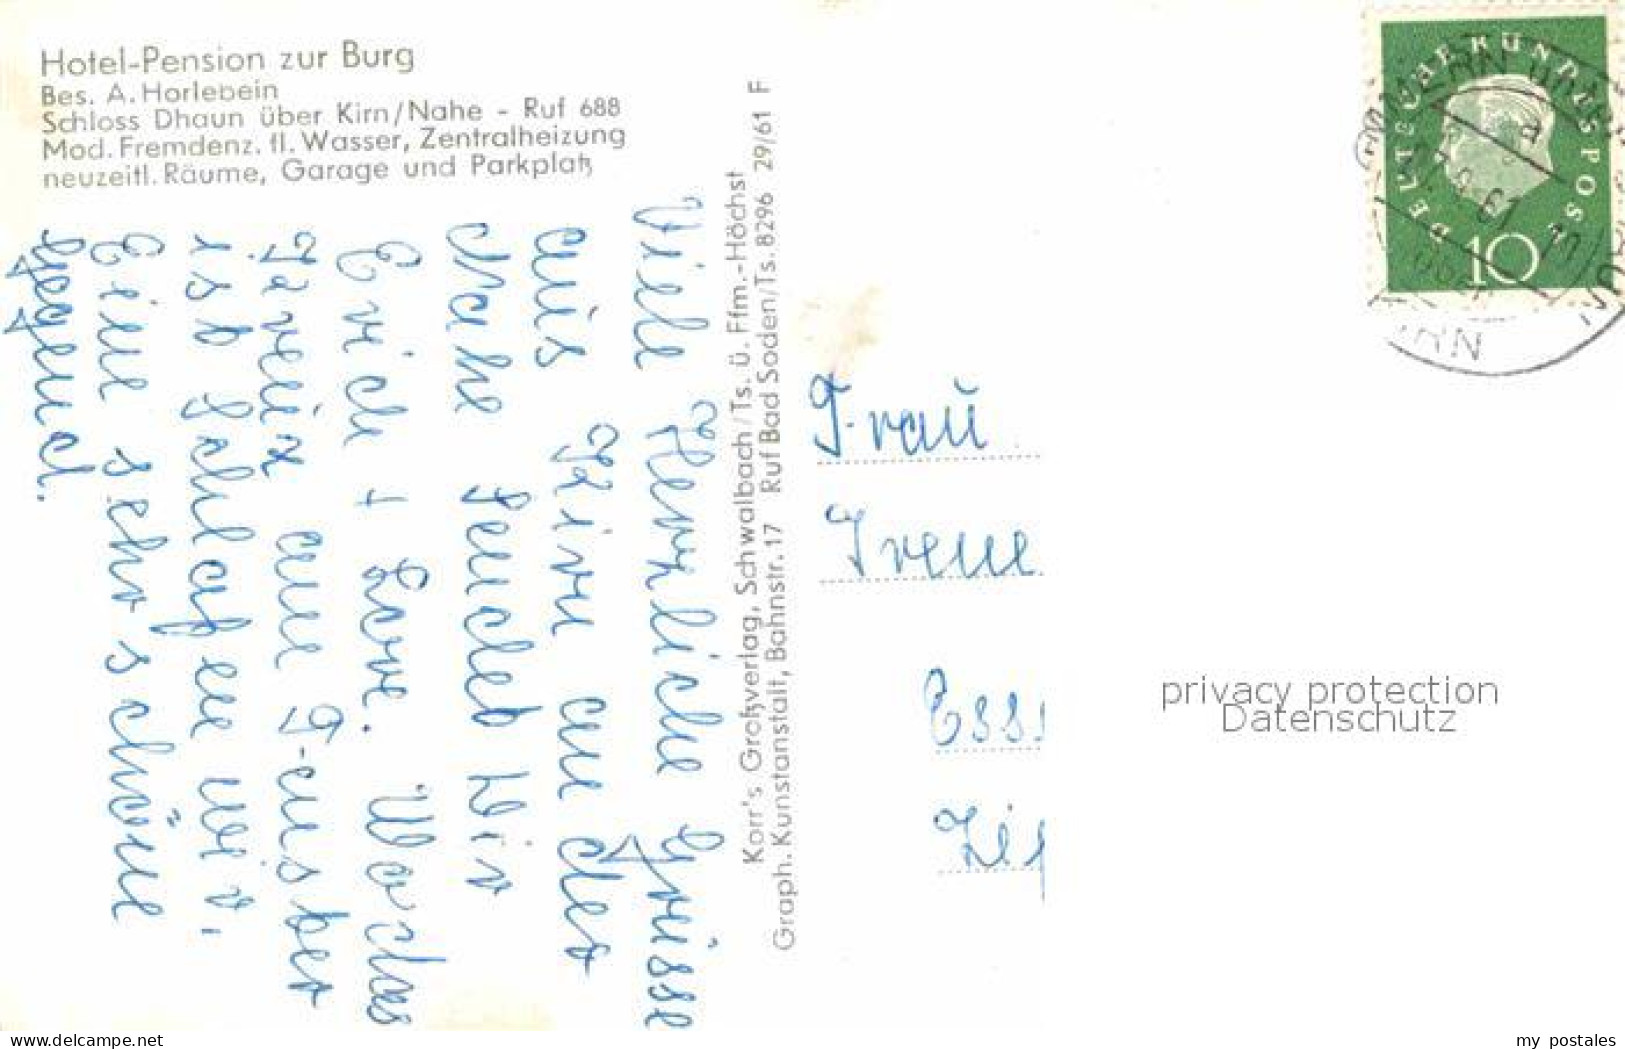 Hotel-Pension zur Burg
Bes. A. Horlebein
Schloss Dhaun über Kirn/Nahe - Ruf 688
Mod. Fremdenz. fl. Wasser, Zentralheizung
neuzeitl. Räume, Garage und Parkplatz
Viele Herzliche Grüsse
aus Kirn an der
Nahe sendet Dir
Erich + Lore. Wo das
Kreuz am Fenster
ist schlafen wir,
Eine sehr schöne
Gegend.
Korr's Großverlag, Schwalbach/Ts. ü. Ffm.-Höchst
Graph. Kunstanstalt, Bahnstr. 17 Ruf Bad Soden/Ts. 8296 29/61 F
DEUTSCHE BUNDESPOST
10
Frau
Irene
privacy protection
Datenschutz
www.delcampe.net
my_postales